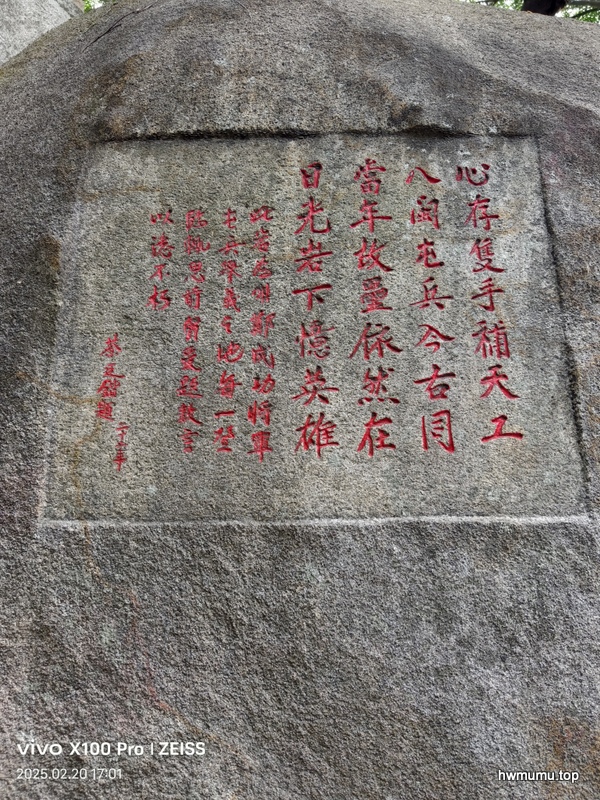 心存隻手補天工
八闽屯兵今古同
當年故壘依然在
日光岩下憶英雄
此岩為明鄭成功將軍
屯兵舉義之地每一登
臨輒思爰數言
以誌不朽
蔡廷鍇題
vivo X100 Pro | ZEISS
2025.02.20 17:01
hwmumu.top